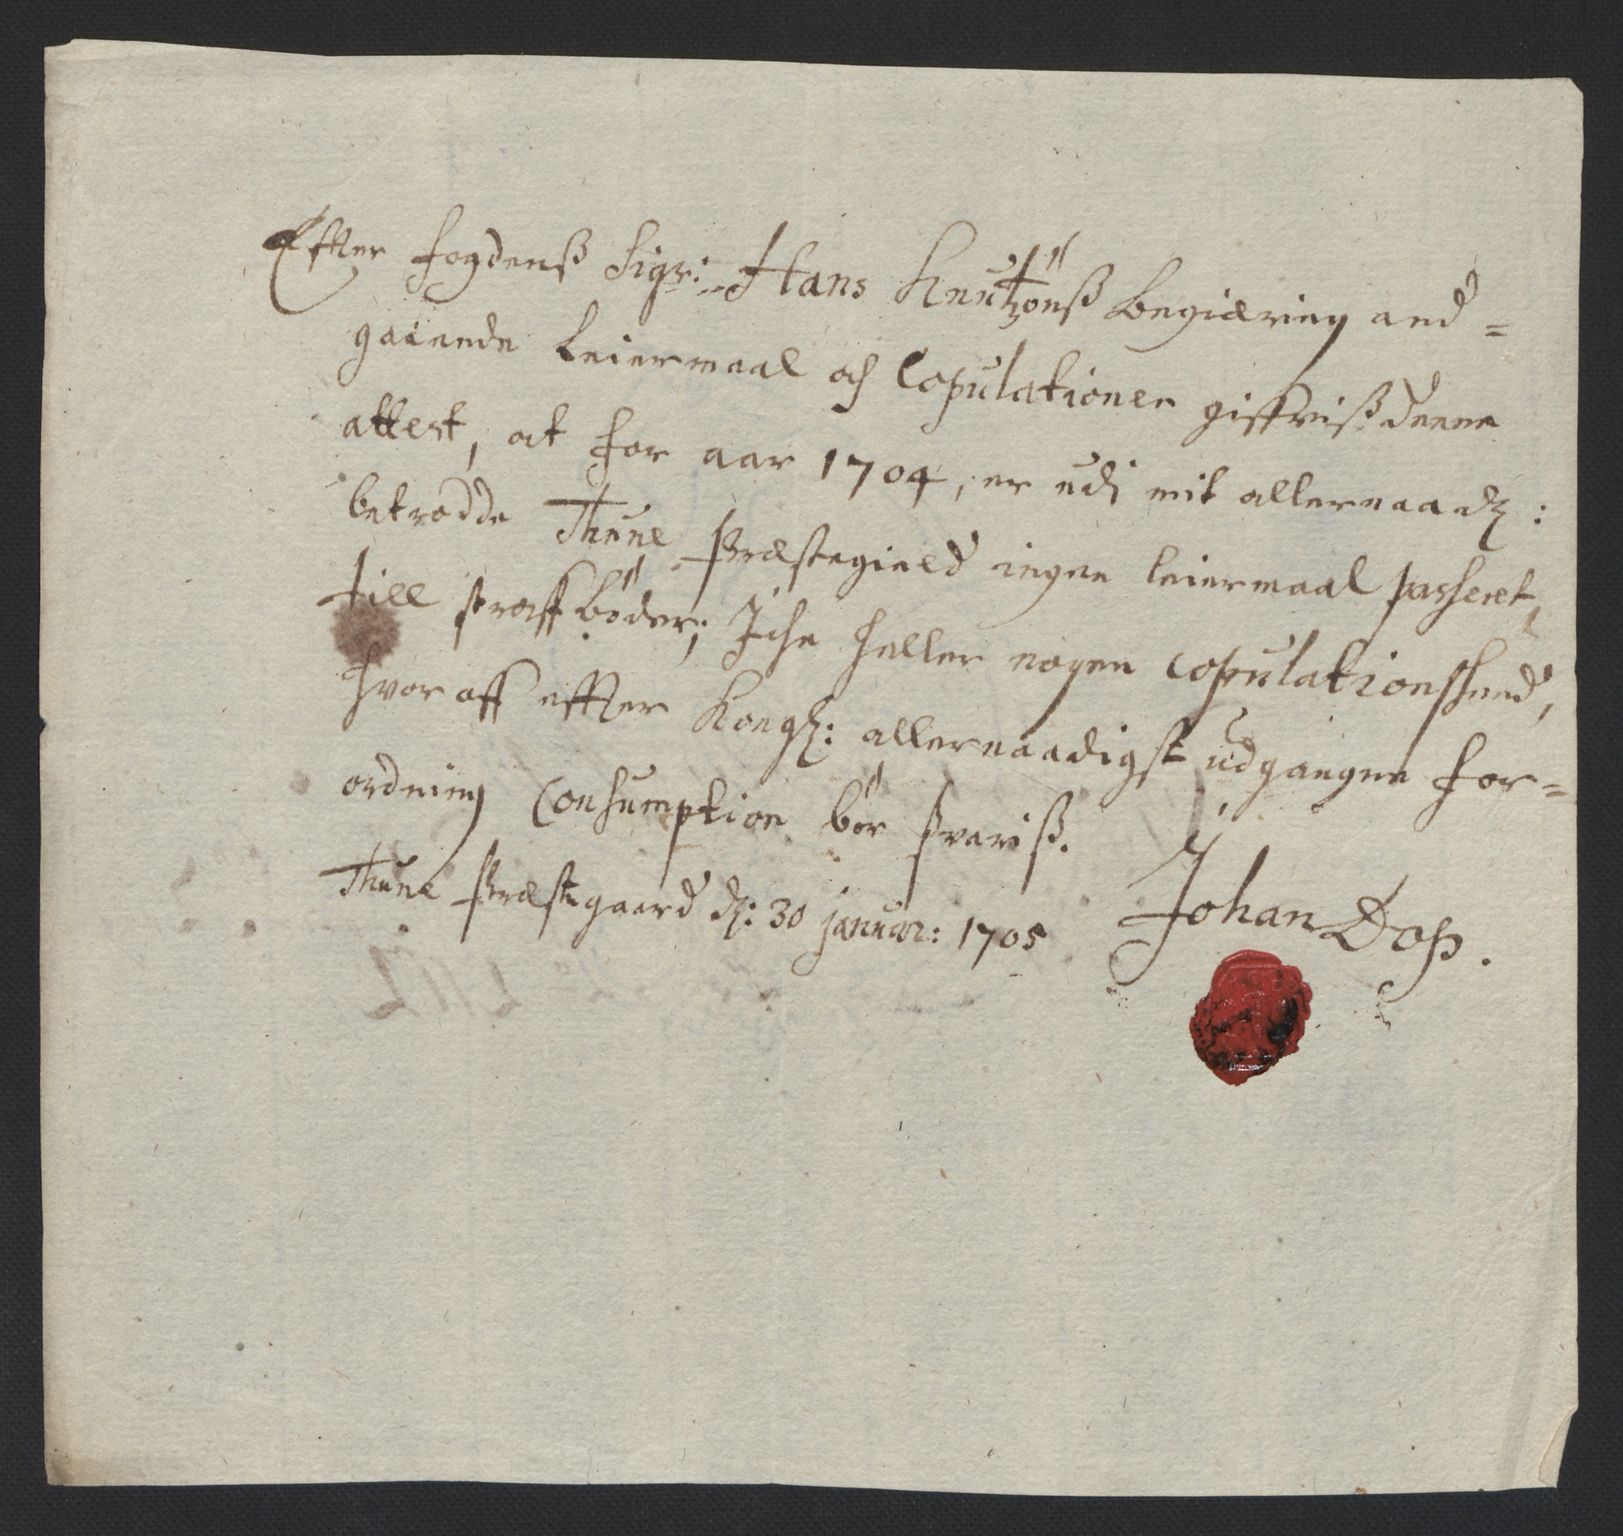 Effter fogdenß Sigr: Hans Knutzönß begiæring and=
gaaende Leiermaal och Copulationer giffuiß denne
attest, at for aar 1704, er udi mit allernaadg:
betrodde Thune Præstegield ingen leiermaal passeret,
till straff böder; Iche heller nogen copulation skeed,
hvoraff effter Kongl: allernaadigst udgangne for=
ordning Consumption bör svariß.
Thune Præstegaard d: 30 januar: 1705
Johan Doß.